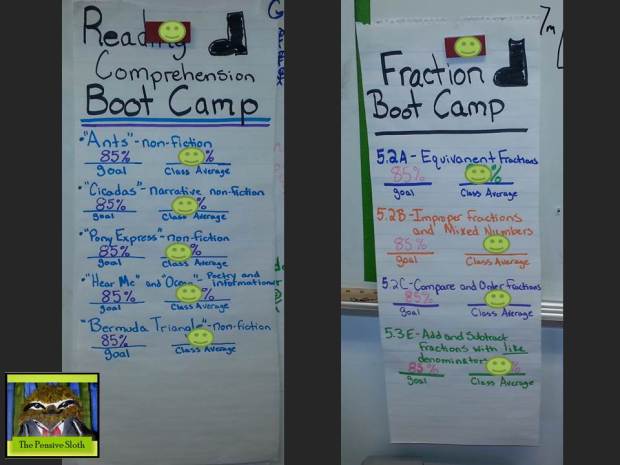 Reading
Comprehension
Boot Camp
• "Ants" - non-fiction
85% %
goal Class Average
• "Cicadas" - narrative non-fiction
85% %
goal Class Average
• "Pony Express" - non-fiction
85% %
goal Class Average
• "Hear Me" and - Poetry and
informational
85% %
goal Class Average
"Bermuda Triangle" - non-fiction
85%
goal Class Average
Fraction
Boot Camp
5.2A - Equivanent Fractions
85% %
goal Class Average
5.2B - Improper fractions
and Mixed Numbers
85%
goal Class Average
5.2C - Compare and Order Fractions
85%
goal Class Average
5.3E - Add and Subtract
fractions with like
denominators
85% %
goal Class Average
7m
The Pensive Sloth